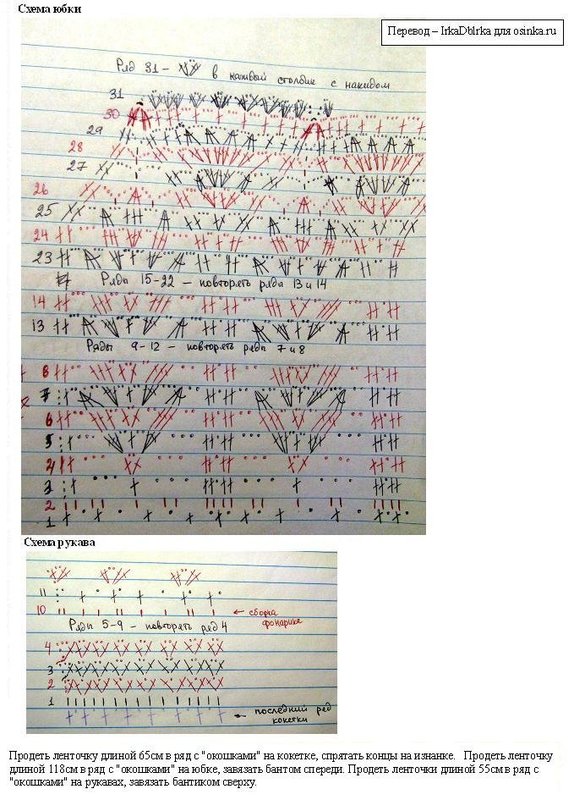 Схема юбки
Перевод – IrkaDbIrka для osinka.ru
Ряд 31 – в каждый столбик с накидом
31
30
29
28
27
26
25
24
23
Ряды 15-22 – повторять ряды 13 и 14
14
13
Ряды 9-12 – повторять ряды 7 и 8
8
7
6
5
4
3
2
1
Схема рукава
11
10
← сборка
фонарике
Ряды 5-9 – повторять ряд 4
4
3
2
1
последний ряд
кокетки
Продеть ленточку длиной 65см в ряд с "окошками" на кокетке, спрятать концы на изнанке. Продеть ленточку
длиной 118см в ряд с "окошками" на юбке, завязать бантом спереди. Продеть ленточки длиной 55см в ряд с
"окошками" на рукавах, завязать бантиком сверху.